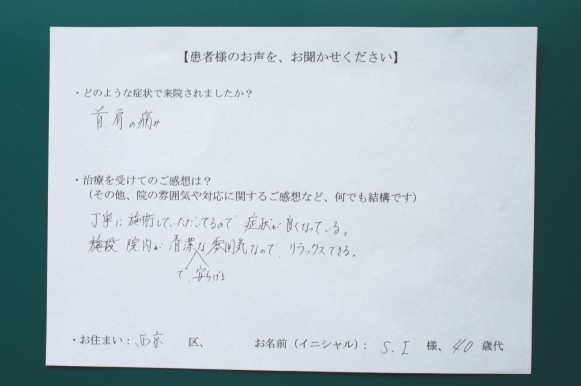 【患者様のお声を、お聞かせください】
・どのような症状で来院されましたか?
首、肩の痛み
・治療を受けてのご感想は?
(その他、院の雰囲気や対応に関するご感想など、何でも結構です)
丁寧に施術していただいてるので 症状が良くなっている。
施設 院内が清潔な雰囲気なので リラックスできる。
で、安らげる
・お住まい:右京 区、 お名前(イニシャル): S.I 様、40 歳代